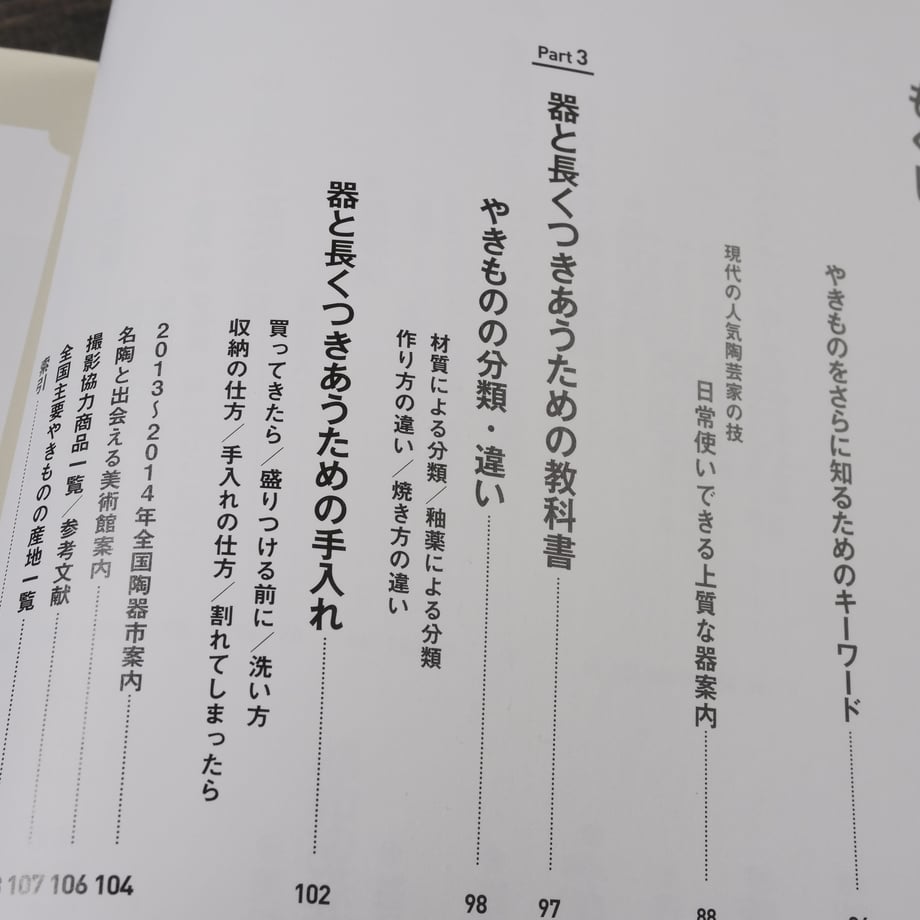 やきものをさらに知るためのキーワード
現代の人気陶芸家の技
日常使いできる上質な器案内
88
Part 3
器と長くつきあうための教科書
97
やきものの分類・違い
98
材質による分類／釉薬による分類
作り方の違い／焼き方の違い
器と長くつきあうための手入れ
102
買ってきたら／盛りつける前に／洗い方
収納の仕方／手入れの仕方／割れてしまったら
2013〜2014年全国陶器市案内
104
名陶と出会える美術館案内
106
撮影協力商品一覧／参考文献
107
全国主要やきものの産地一覧
索引